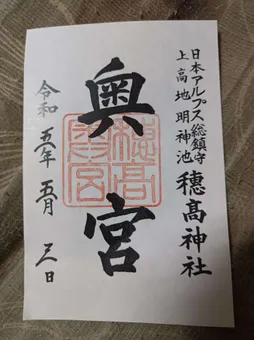 日本アルプス総鎮守
上高地明神池
穂髙神社
奥宮
穂髙
奥宮
令和五年五月三日